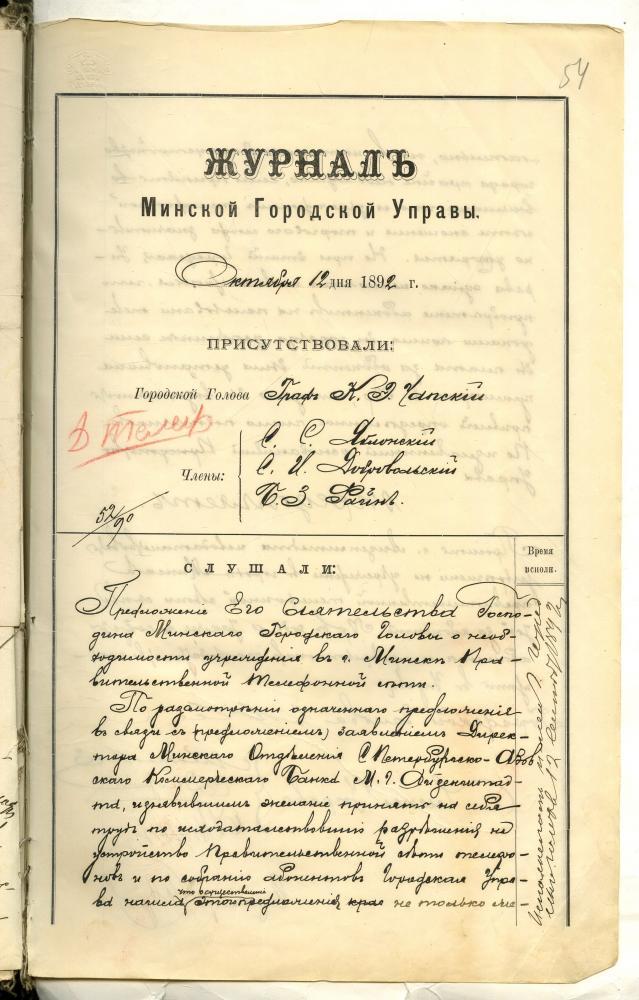 54
ЖУРНАЛЪ
Минской Городской Управы.
Октября 12 дня 1892 г.
ПРИСУТСТВОВАЛИ:
Городской Голова Графъ К. Э. Чапскій
С. С. Ялмонскій
Члены: С. И. Добровольскій
Б. З. Файнъ.
52/90
СЛУШАЛИ:
Время
исполн.
Предложеніе Его Сіятельства Госпо-
дина Минскаго Городскаго Головы о необ-
ходимости учрежденія въ г. Минскѣ Пра-
вительственной телефонной сѣти.
По разсмотрѣніи означеннаго предложенія
въ связи съ (предложеніемъ) заявленіемъ Дирек-
тора Минскаго Отдѣленія С Петербургско-Азов-
скаго Коммерческаго Банка М. Г. Айденштад-
та, изъявившимъ желаніе принять на себя
трудъ по исходатайствованію разрѣшенія на
устройство Правительственной сѣти телефо-
новъ и по собранію абонентовъ Городская Упра-
что осуществленіе
ва нашла этого предложенія края не только